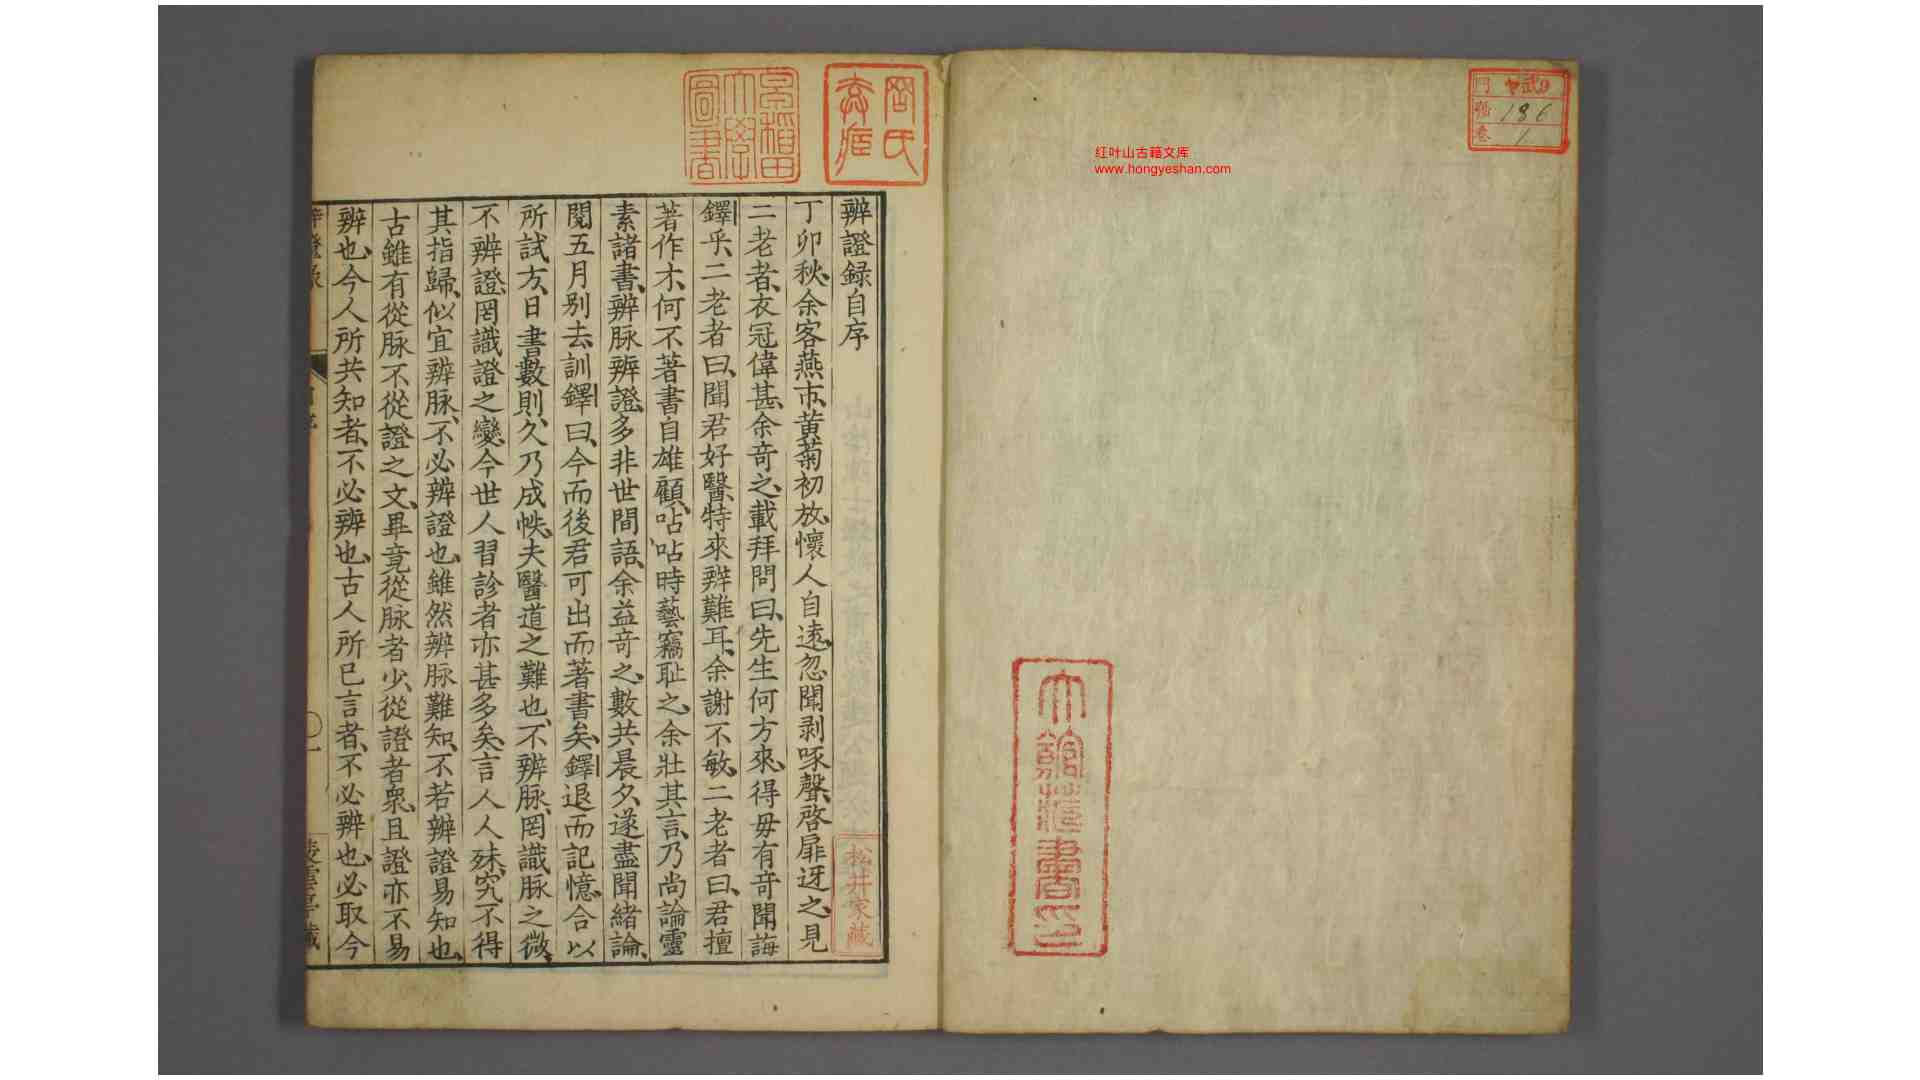 門 ヤ武9
號 186
卷 1
红叶山古籍文库
www.hongyeshan.com
早稲田大學圖書
松井家藏
辨證録自序
丁卯秋、余客燕市、黄菊初放、懷人自遠、忽聞剥啄聲、啓扉迓之、見
二老者、衣冠偉甚、余竒之、載拜問曰、先生何方來、得毋有竒聞誨
鐸乎、二老者曰、聞君好醫、特來辨難耳、余謝不敏、二老者曰、君擅
著作才、何不著書自雄、顧呫呫時藝竊耻之、余壯其言、乃尚論靈
素諸書、辨脉辨證、多非世間語、余益竒之、數共晨夕、遂盡聞緒論、
閱五月别去、訓鐸曰、今而後君可出而著書矣、鐸退而記憶、合以
所試方、日書數則、久乃成帙、夫醫道之難也、不辨脉、罔識脉之微、
不辨證、罔識證之變、今世人習診者亦甚多矣、言人人殊、究不得
其指歸、似宜辨脉、不必辨證也、雖然辨脉難知、不若辨證易知也、
古雖有從脉不從證之文、畢竟從脉者少、從證者衆、且證亦不易
辨也、今人所共知者、不必辨也、古人所已言者、不必辨也、必取今
辨證录
自序
一
凌雲亭藏